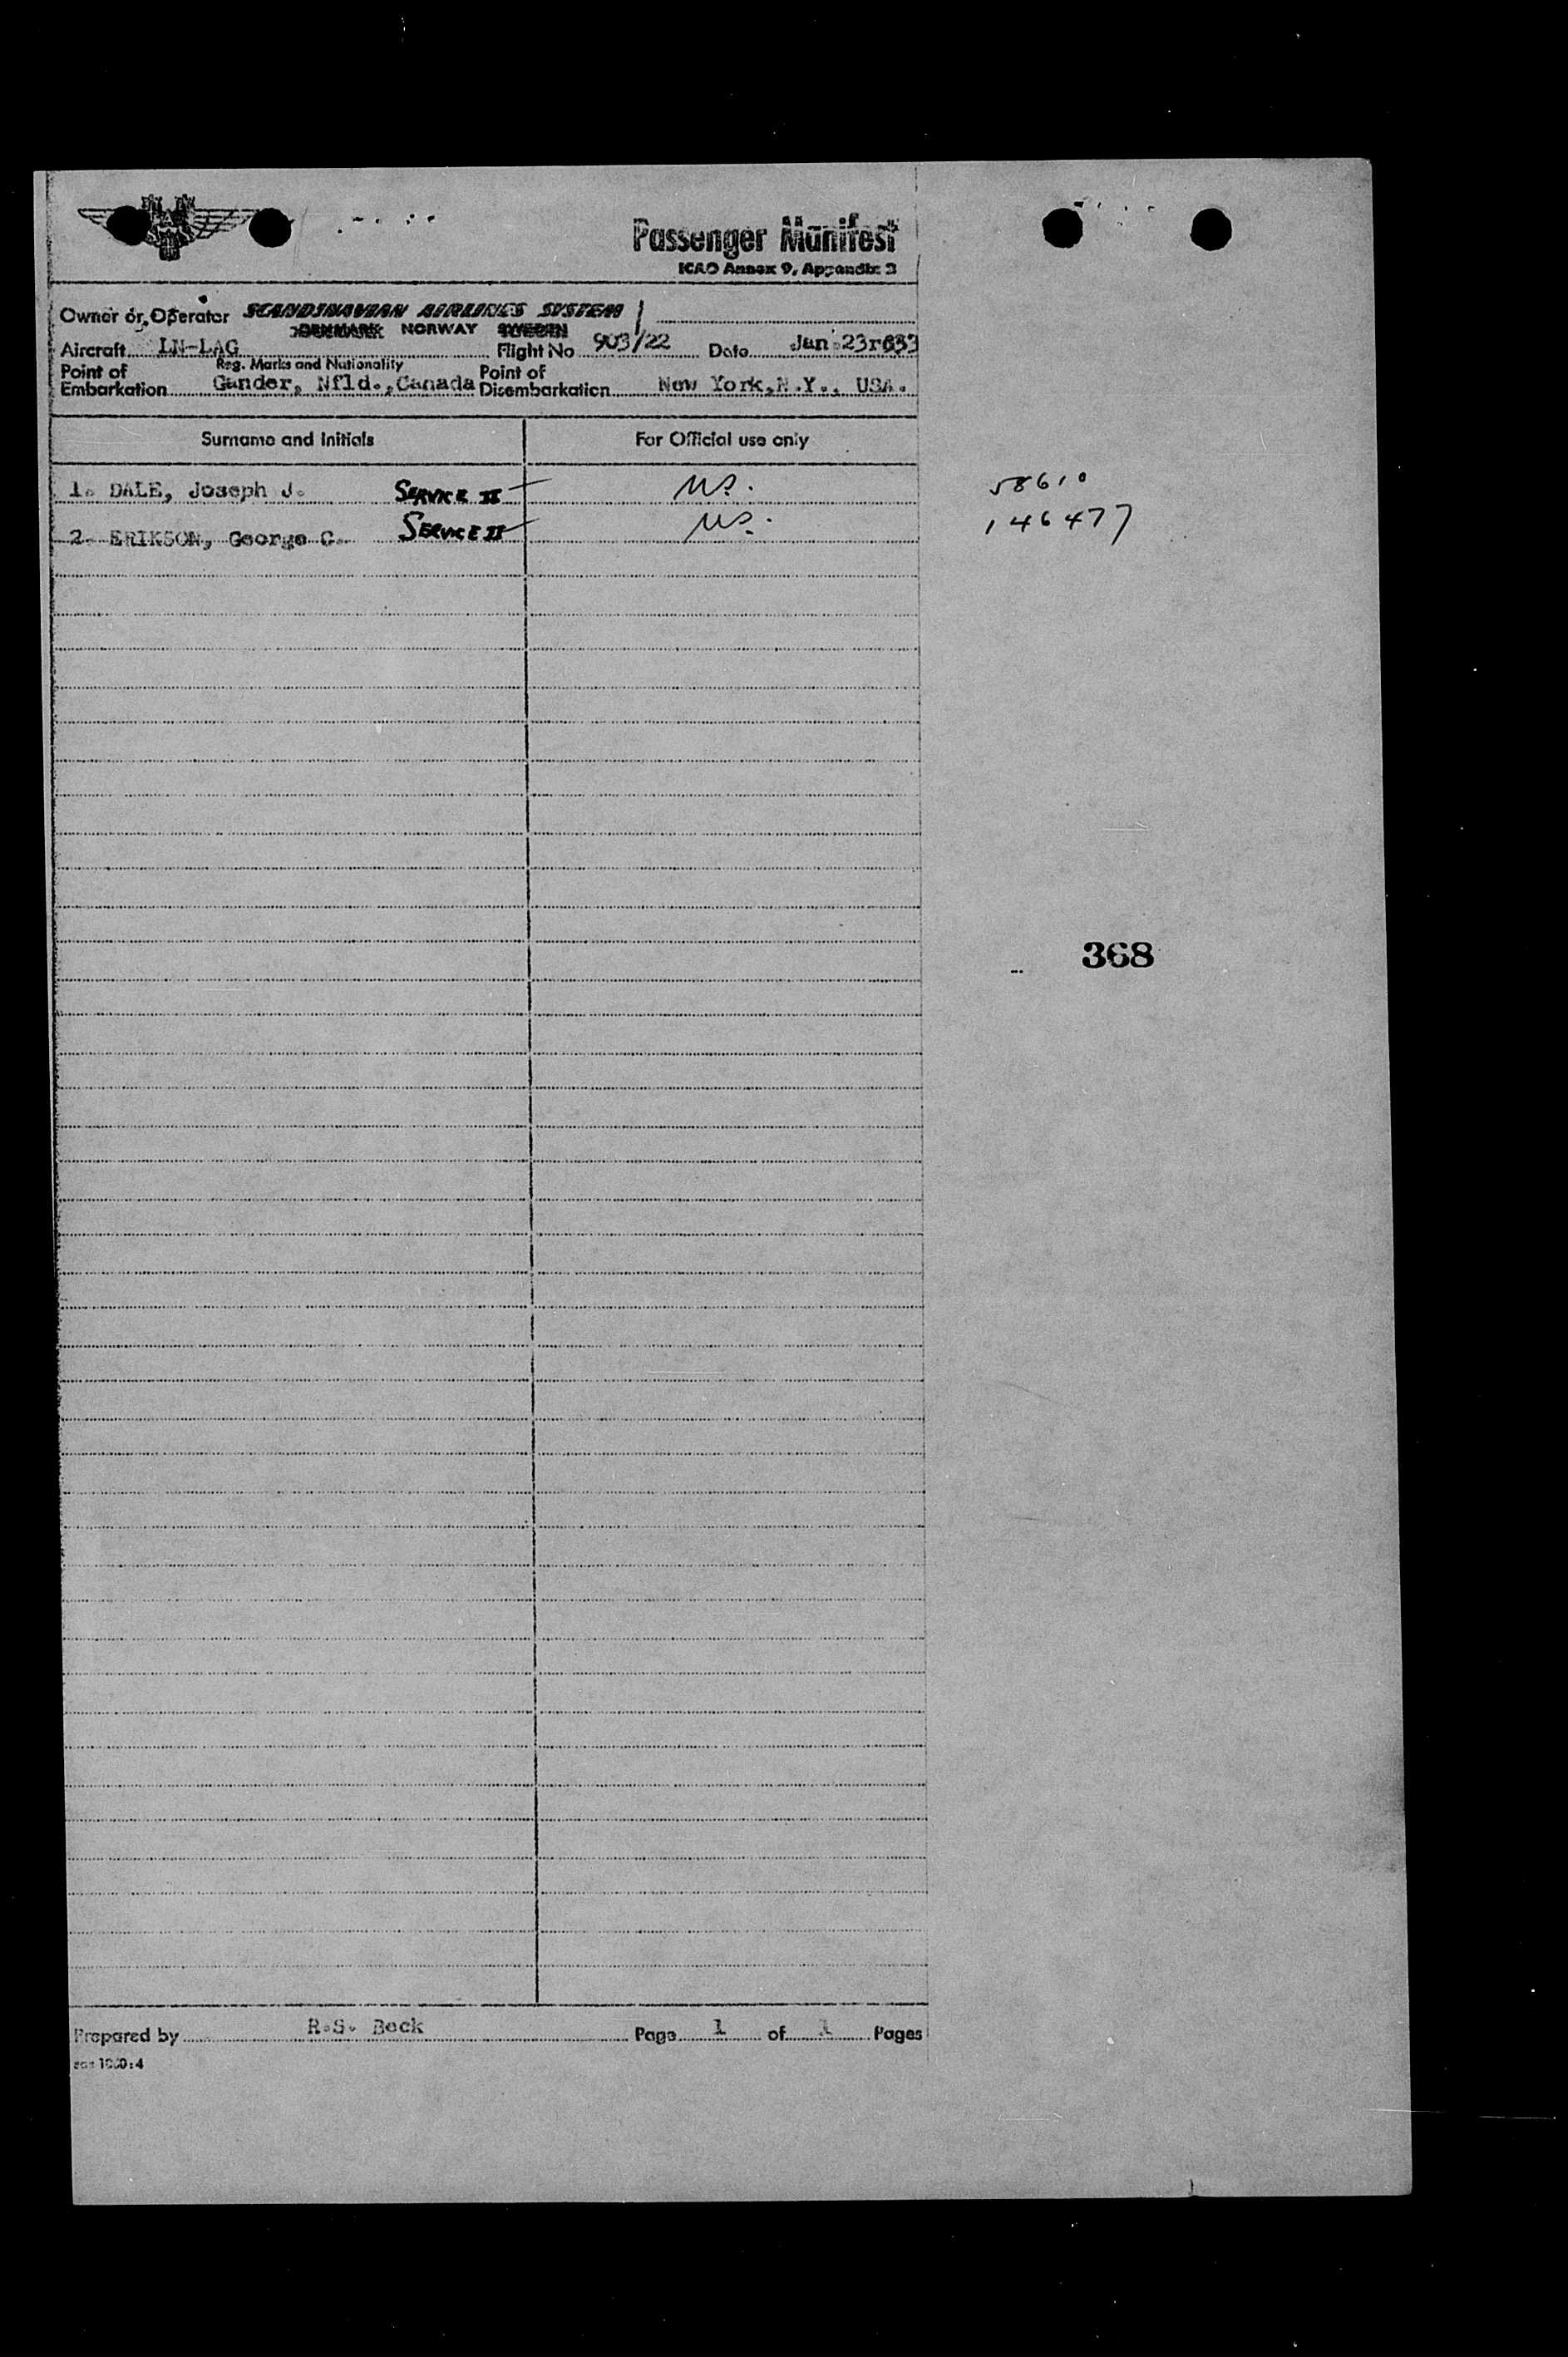 Passenger Manifest
ICAO Annex 9, Appendix 3
Owner or Operator SCANDINAVIAN AIRLINES SYSTEM
DENMARK NORWAY SWEDEN
Aircraft LN-LAG Flight No 903/22 Date Jan 23rd
Reg. Marks and Nationality
Point of Embarkation Gander, Nfld., Canada Point of Disembarkation New York, N.Y., USA.
Surname and Initials For Official use only
1. DALE, Joseph J. SERVICE II US. 58610
2. ERIKSON, George C. SERVICE II US. 146477
368
Prepared by R.S. Beck Page 1 of 1 Pages